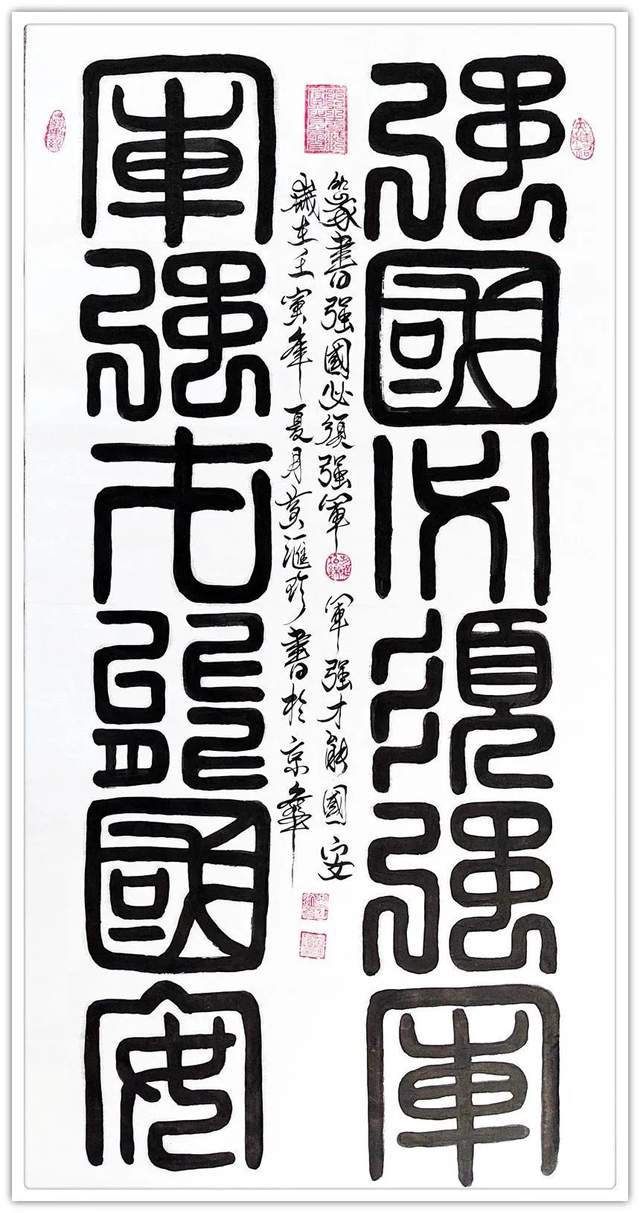 强國必須强軍
篆書强國必須强軍 軍强才能國安
歲在壬寅年夏月黄滙珍書於京華
軍强才能國安